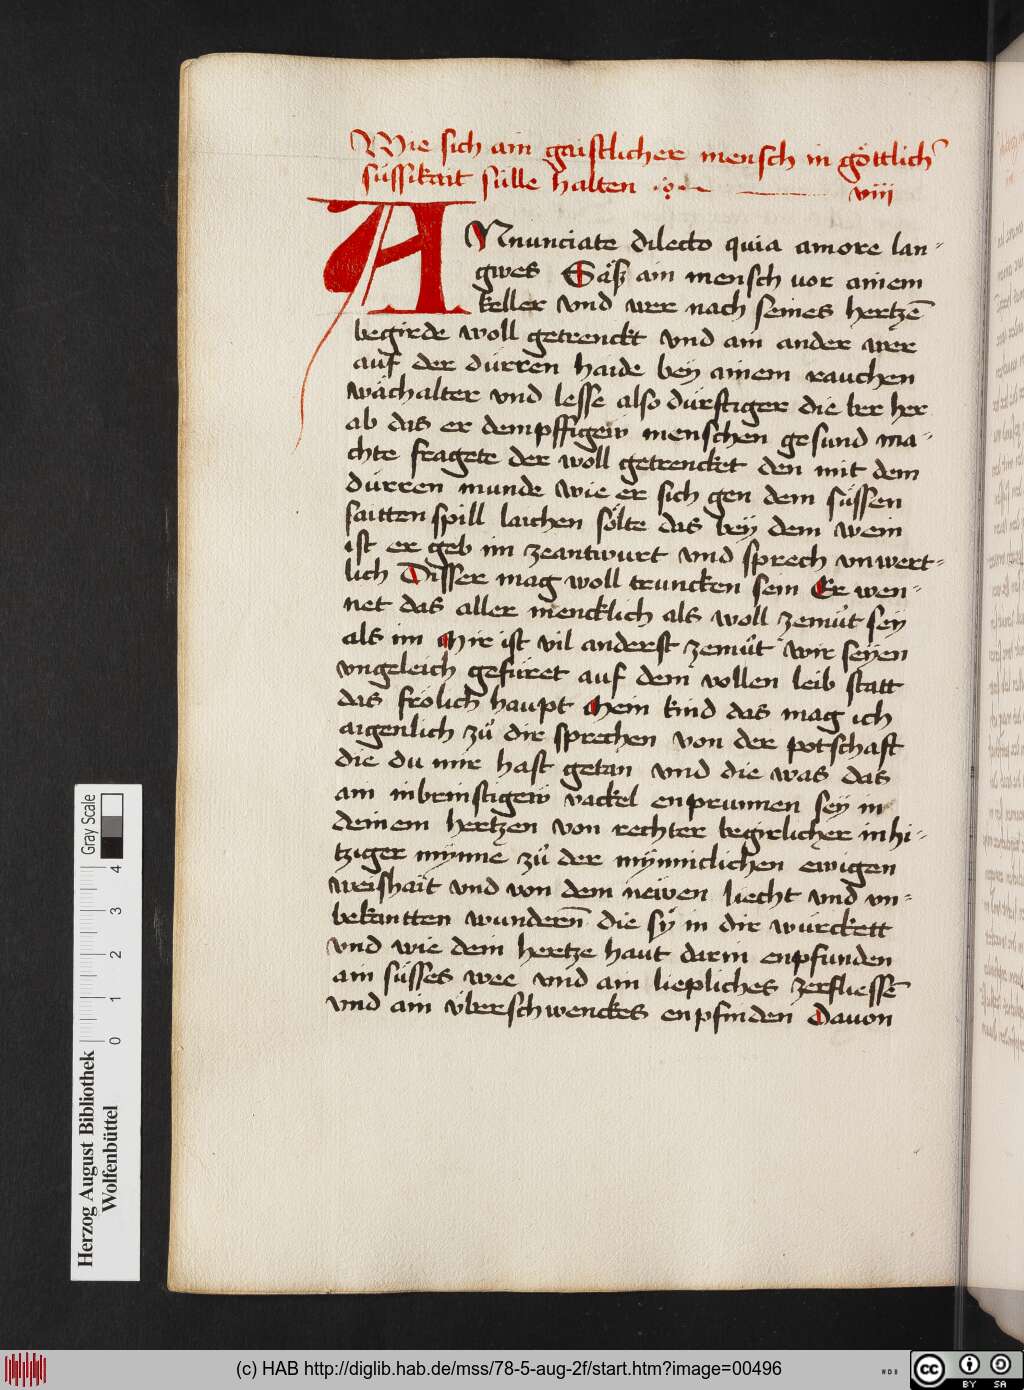 Wie sich ain gaistlicher mensch in göttlich᷒
süssikait sülle halten viij
ANnunciate dilecto quia amore lan-
gwes Säsz ain mensch vor ainem
keller vnd wer nach seines hertzē
begirde woll getrenckt vnd ain ander wër
auf der dürren haide bey ainem rauchen
wächalter vnd lesse also dürstiger die ber her
ab das er dempffigew menschen gesund ma-
chte fragete der woll getrencket den mit dem
dürren munde wie er sich gen dem süssen
saitten spill laichen sölte das bey dem wein
ist er geb im zeantwurt vnd sprech vnwert-
lich Disser mag woll truncken sein Er wen-
net das aller mencklich als woll zemůt sey
als im Mir ist vil anderst zemůt wir seyen
vngeleich gefüret auf dem vollen leib statt
das frölich haupt Mein kind das mag ich
aigenlich zů dir sprechen von der potschaft
die du mir hast getan vnd die was das
ain inbrinstigew vackel enprunnen sey in
deinem hertzen von rechter begirlicher inhi-
tziger mynne zů der mynniclichen ewigen
weishait vnd von dem newen liecht vnd vn-
bekantten wundern̄ die sy in dir würckett
vnd wie dein hertze haut darin enpfunden
ain süsses wee vnd ain liepliches zerfliessē
vnd ain überschwenckes enpfinden Dauon
Herzog August Bibliothek
Wolfenbüttel
Gray Scale
0 1 2 3 4
(c) HAB http://diglib.hab.de/mss/78-5-aug-2f/start.htm?image=00496
WDB
cc BY SA